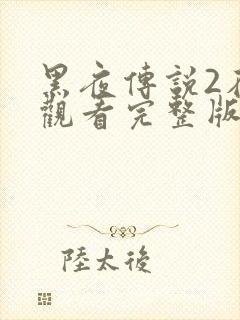 黑夜傳説2在
觀看完整版
陸太後